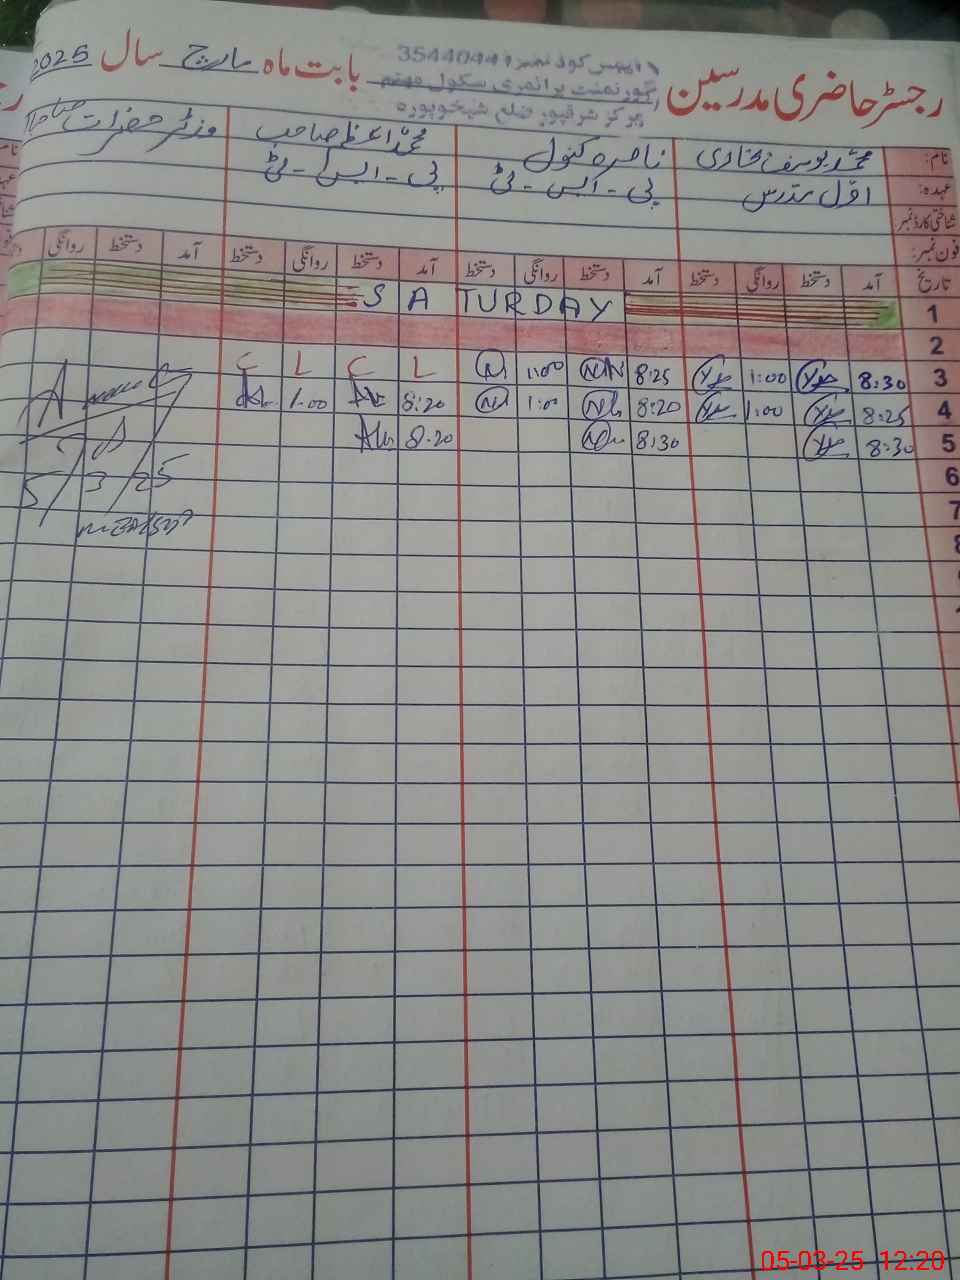 رجسٹر حاضری مدرسین بابت ماہ مارچ سال 2025
ایمس کوڈ نمبر 35440449
گورنمنٹ پرائمری سکول
مرکز شرقپور ضلع شیخوپورہ
نام: محمد یوسف بخاری ناصرہ کنول محمد اعظم صاحب وزٹر حضرات
عہدہ: اول مدرس پی - ایس - ٹی پی - ایس - ٹی
شناختی کارڈ نمبر:
فون نمبر:
تاریخ آمد دستخط روانگی دستخط آمد دستخط روانگی دستخط آمد دستخط روانگی دستخط آمد دستخط روانگی
1 SATURDAY
2
3 8:30 1:00 8:25 1:00 L C L C
4 8:25 1:00 8:20 1:00 8:20 1:00
5 8:30 8:30 8:20
6
7
8
5/3/25
05-03-25 12:20